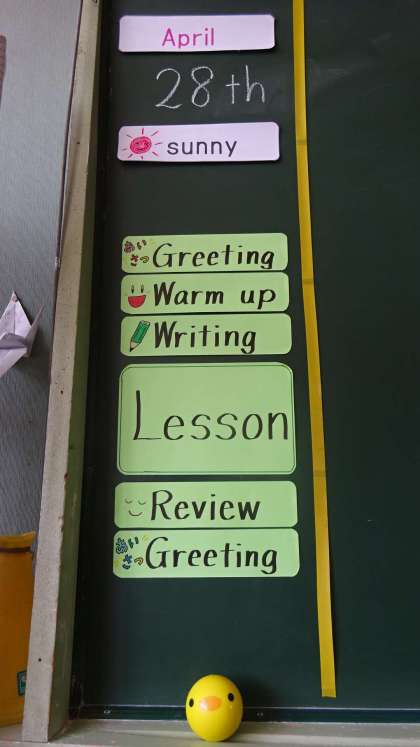 April
28th
sunny
あい
さつ
Greeting
Warm up
Writing
Lesson
Review
あい
さつ
Greeting